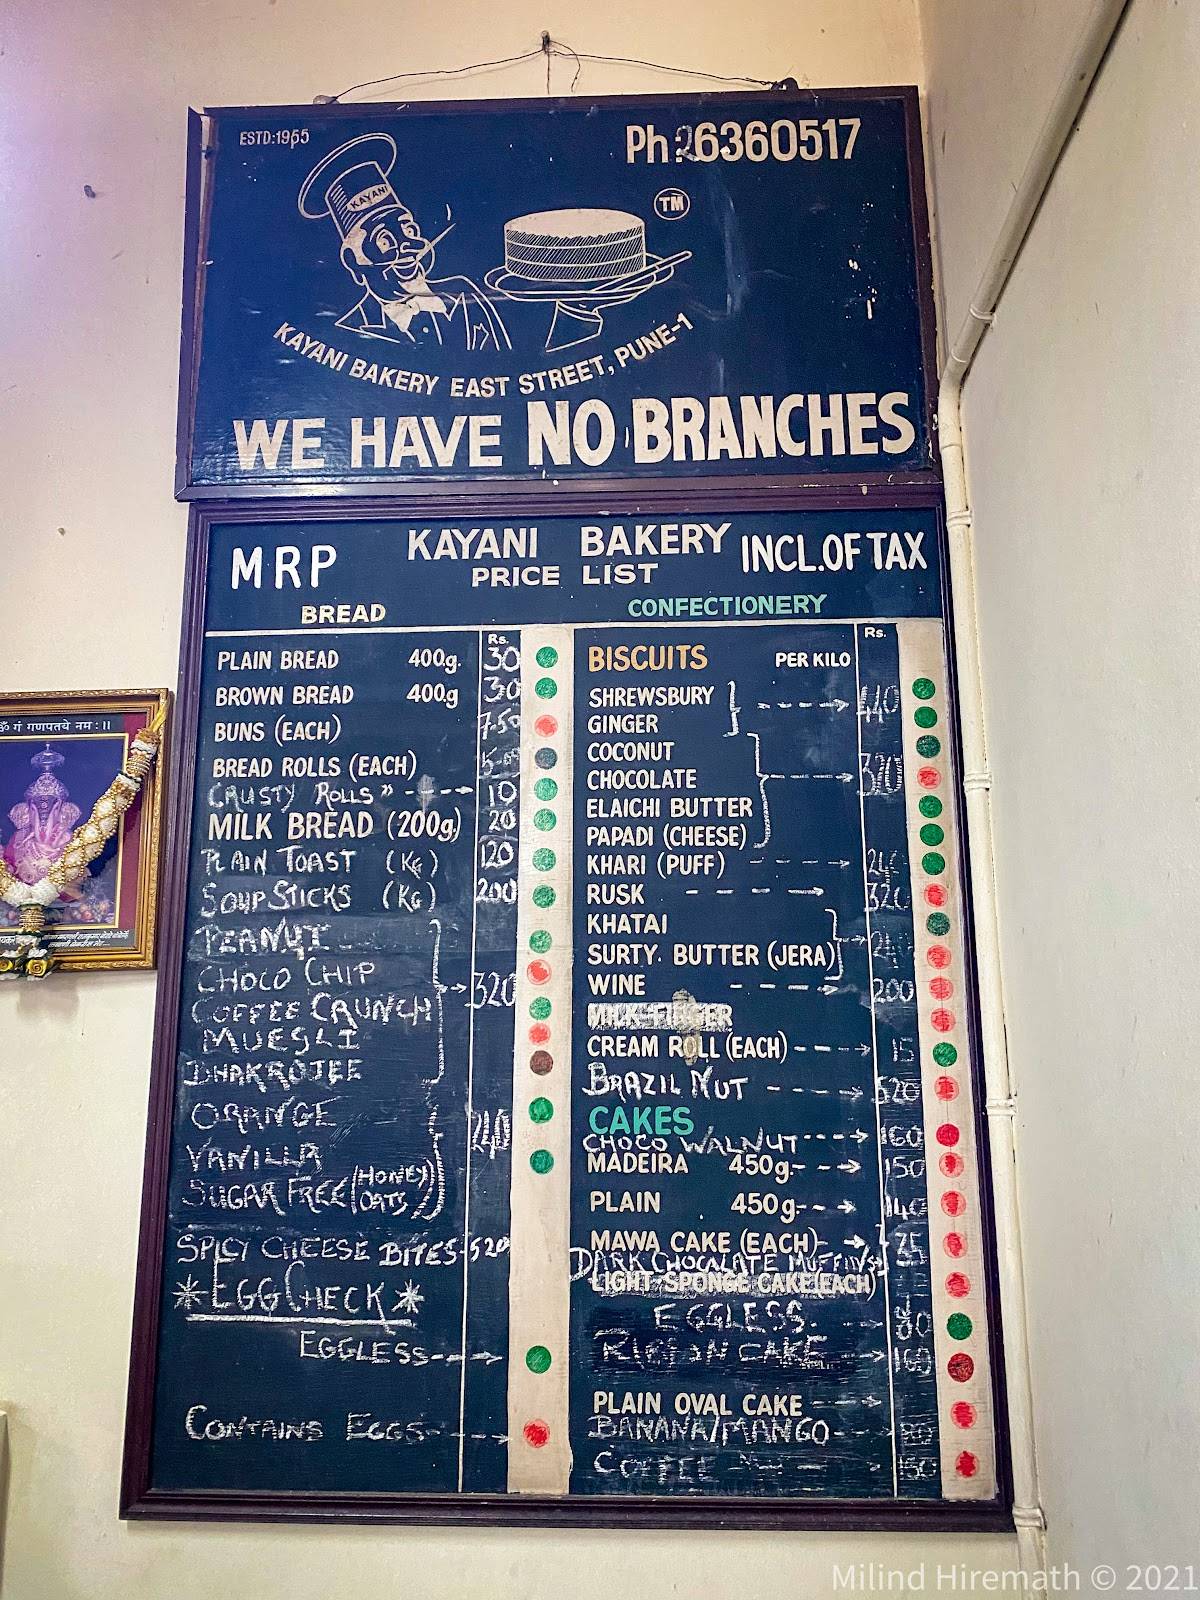 ESTD:1955
Ph:26360517
KAYANI
TM
KAYANI BAKERY EAST STREET, PUNE-1
WE HAVE NO BRANCHES
MRP KAYANI BAKERY INCL.OF TAX
PRICE LIST
BREAD
Rs.
PLAIN BREAD 400g. 30
BROWN BREAD 400g 30
BUNS (EACH) 7-50
BREAD ROLLS (EACH)
CRUSTY ROLLS " 10
MILK BREAD (200g) 20
PLAIN TOAST (KG) 120
SOUP STICKS (KG) 200
PEANUT
CHOCO CHIP
COFFEE CRUNCH 320
MUESLI
DHAKROJEE
ORANGE
VANILLA 240
SUGAR FREE (HONEY OATS)
SPICY CHEESE BITES 520
*EGG CHECK*
EGGLESS
CONTAINS EGGS
CONFECTIONERY
Rs.
BISCUITS PER KILO
SHREWSBURY 440
GINGER
COCONUT
CHOCOLATE 320
ELAICHI BUTTER
PAPADI (CHEESE)
KHARI (PUFF)
RUSK
KHATAI
SURTY. BUTTER (JERA)
WINE 200
MILK-FINGER
CREAM ROLL (EACH) 15
BRAZIL NUT 520
CAKES
CHOCO WALNUT 160
MADEIRA 450g. 150
PLAIN 450g 140
MAWA CAKE (EACH)
DARK CHOCOLATE MUFFINS
LIGHT SPONGE CAKE (EACH)
EGGLESS.
CAKE 160
PLAIN OVAL CAKE
BANANA/MANGO 80
COFFEE
ॐ गं गणपतये नमः॥
Milind Hiremath © 2021